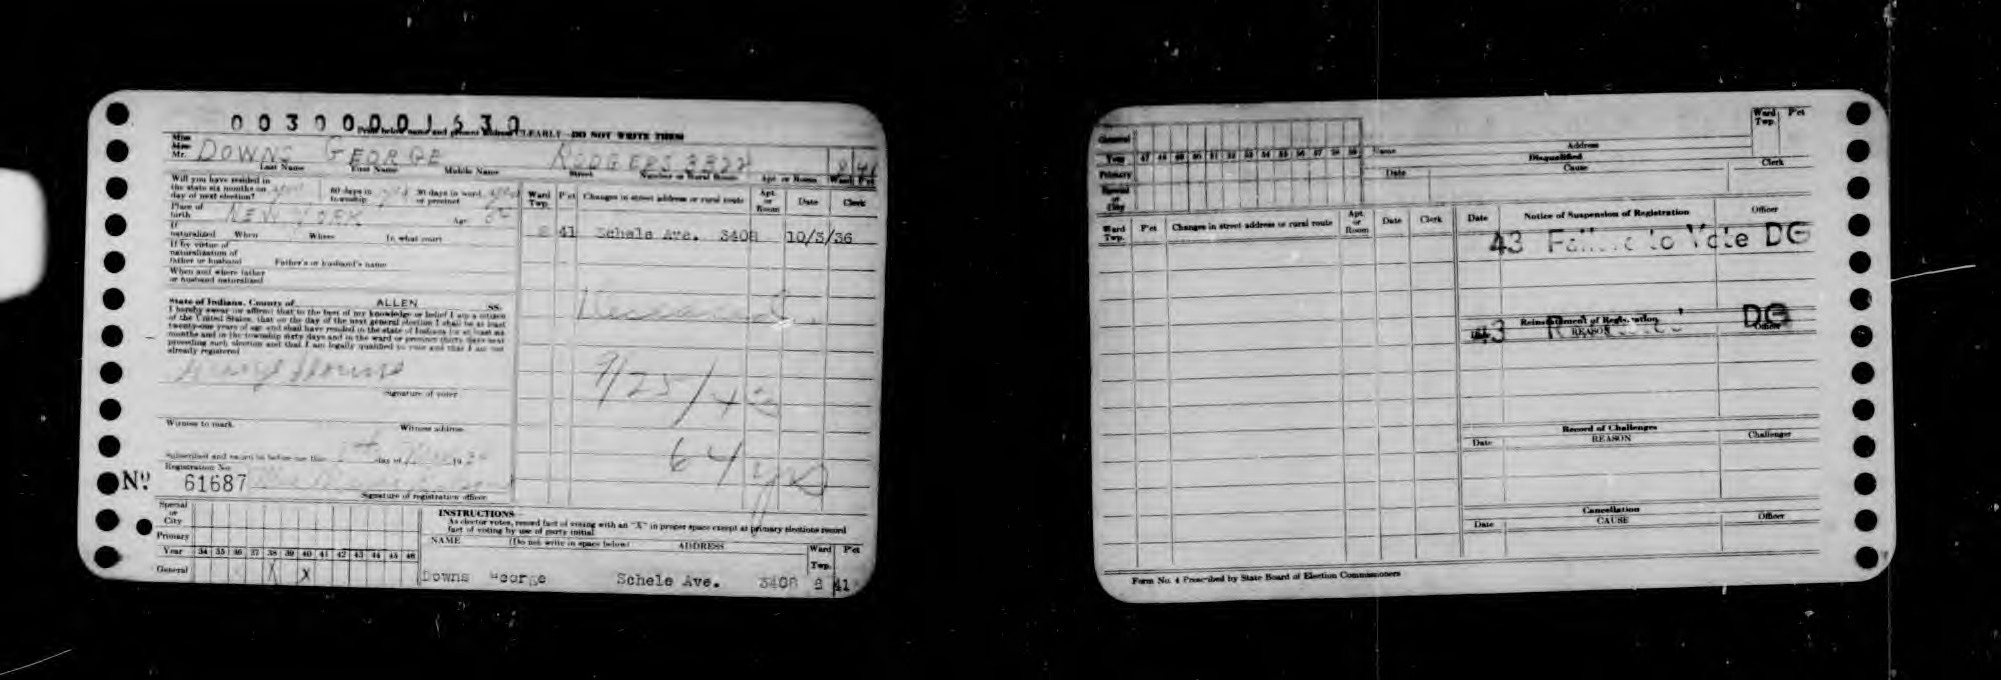 003000001630
Print below name and present address CLEARLY—DO NOT WRITE THESE
Miss
Mrs.
Mr. DOWNS GEORGE RODGERS 3322 8 41
Last Name First Name Middle Name Street Number or Rural Route Apt or Room Ward Pct
Will you have resided in
the state six months on
day of next election?
60 days in
township yes
30 days in ward
or precinct
Place of
birth NEW YORK Age
If
naturalized When Where In what court
If by virtue of
naturalization of
father or husband Father's or husband's name
When and where father
or husband naturalized
State of Indiana, County of ALLEN SS.
I hereby swear (or affirm) that to the best of my knowledge or belief I am a citizen
of the United States, that on the day of the next general election I shall be at least
twenty-one years of age and shall have resided in the state of Indiana for at least six
months and in the township sixty days and in the ward or precinct thirty days next
preceding such election and that I am legally qualified to vote and that I am not
already registered
Signature of voter
Witness to mark Witness address
Subscribed and sworn to before me this day of 19
Registration No.
No. 61687
Signature of registration officer
Ward
Twp. Pct Changes in street address or rural route Apt.
or
Room Date Clerk
8 41 Schele Ave. 3408 10/5/36
Deceased
9/25/43
64 yrs
Special
or
City
Primary
Year 34 35 36 37 38 39 40 41 42 43 44 45 46
General X X
INSTRUCTIONS
As elector votes, record fact of voting with an "X" in proper space except at primary elections record
fact of voting by use of party initial
NAME (Do not write in space below) ADDRESS Ward
Twp. Pct
Downs George Schele Ave. 3408 8 41
General
Year 47 48 49 50 51 52 53 54 55 56 57 58 59
Primary
Special
or
City
Name Address Ward
Twp. Pct
Disqualified
Date Cause Clerk
Ward
Twp. Pct Changes in street address or rural route Apt.
or
Room Date Clerk
Date Notice of Suspension of Registration Officer
43 Failure to Vote DG
Reinstatement of Registration
REASON Officer
43 DG
Record of Challenges
Date REASON Challenger
Cancellation
Date CAUSE Officer
Form No. 4 Prescribed by State Board of Election Commissioners